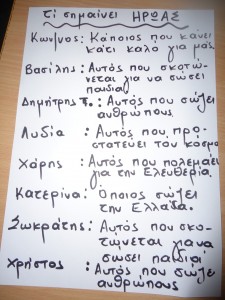 Τί σημαίνει ΗΡΩΑΣ
Κων/νος: Κάποιος που κάνει
κάτι καλό για μας.
Βασίλης: Αυτός που σκοτώ-
νεται για να σώσει
παιδιά
Δημήτρης Τ.: Αυτός που σώζει
ανθρώπους.
Λυδία: Αυτός που προ-
στατεύει τον κόσμο
Χάρης: Αυτός που πολεμάει
για την Ελευθερία.
Κατερίνα: Όποιος σώζει
την Ελλάδα.
Σωκράτης: Αυτός που σκο-
τώνεται για να
σώσει παιδιά
Χρήστος: Αυτός που σώζει
ανθρώπους